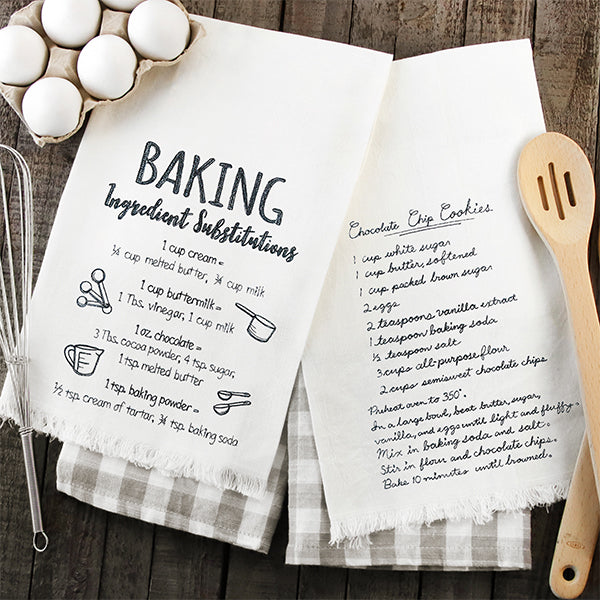 BAKING
Ingredient Substitutions
1 cup cream =
¼ cup melted butter, ¾ cup milk
1 cup buttermilk =
1 Tbs. vinegar, 1 cup milk
1 oz. chocolate =
3 Tbs. cocoa powder, 4 tsp. sugar,
1 tsp. melted butter
1 tsp. baking powder =
½ tsp. cream of tartar, ¾ tsp. baking soda
Chocolate Chip Cookies
1 cup white sugar
1 cup butter, softened
1 cup packed brown sugar
2 eggs
2 teaspoons vanilla extract
1 teaspoon baking soda
½ teaspoon salt
3 cups all-purpose flour
2 cups semisweet chocolate chips
Preheat oven to 350°
In a large bowl, beat butter, sugar,
vanilla, and eggs until light and fluffy.
Mix in baking soda and salt.
Stir in flour and chocolate chips.
Bake 10 minutes until browned.
OXO